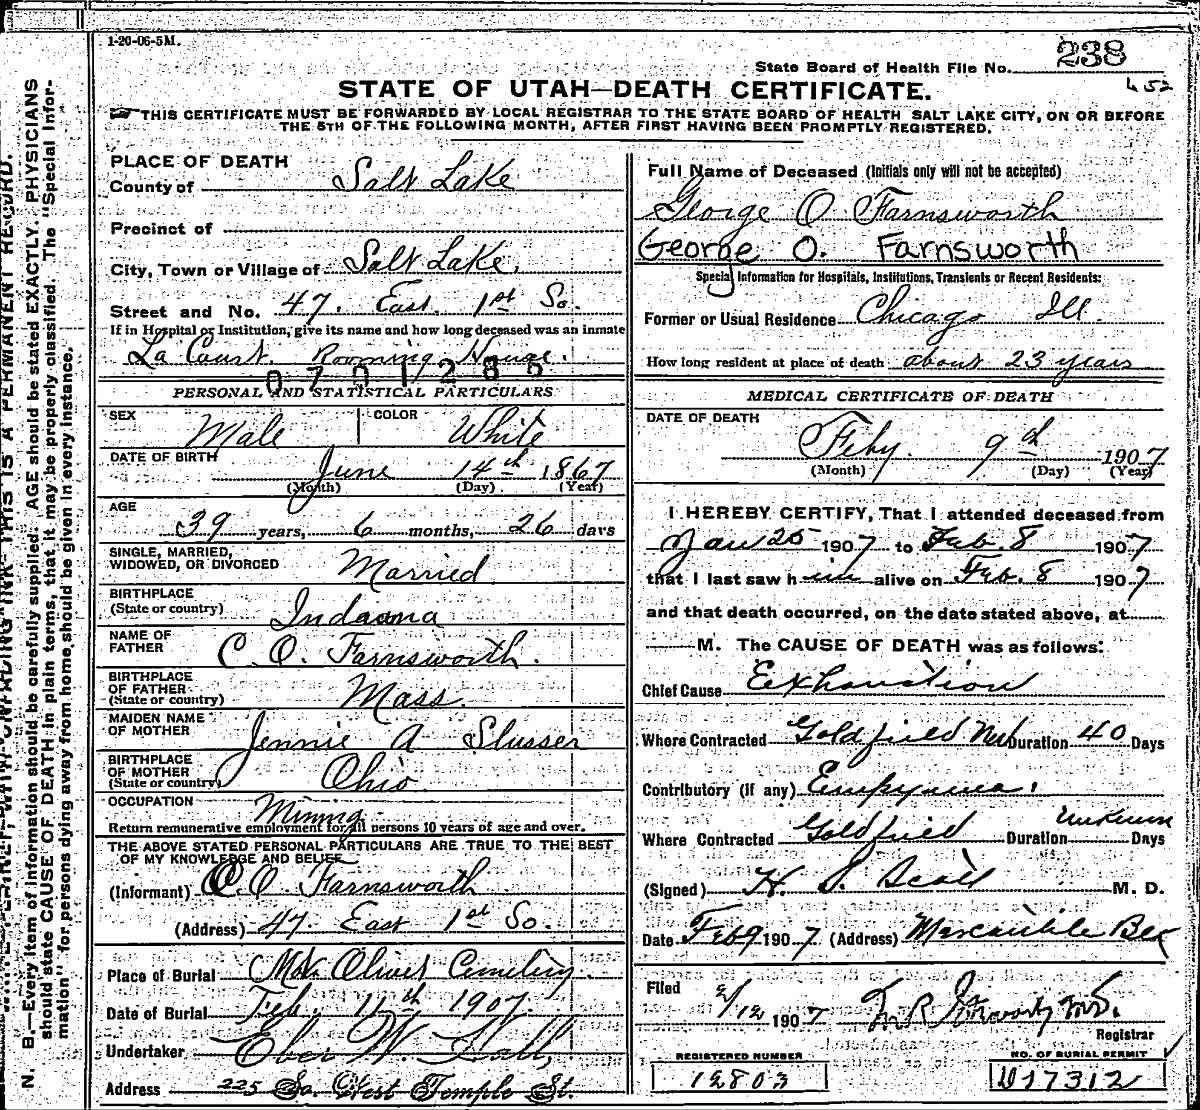 1-20-06-5M.
State Board of Health File No. 238
652
STATE OF UTAH—DEATH CERTIFICATE.
THIS CERTIFICATE MUST BE FORWARDED BY LOCAL REGISTRAR TO THE STATE BOARD OF HEALTH SALT LAKE CITY, ON OR BEFORE
THE 5TH OF THE FOLLOWING MONTH, AFTER FIRST HAVING BEEN PROMPTLY REGISTERED.
PLACE OF DEATH
County of Salt Lake
Precinct of
City, Town or Village of Salt Lake.
Street and No. 47. East. 1st So.
If in Hospital or Institution, give its name and how long deceased was an inmate
La Court. Rooming House.
0701286
PERSONAL AND STATISTICAL PARTICULARS
SEX Male COLOR White
DATE OF BIRTH June 14th 1867
(Month) (Day) (Year)
AGE
39 years, 6 months, 26 days
SINGLE, MARRIED,
WIDOWED, OR DIVORCED Married
BIRTHPLACE
(State or country) Indaona
NAME OF
FATHER C. O. Farnsworth.
BIRTHPLACE
OF FATHER
(State or country) Mass.
MAIDEN NAME
OF MOTHER Jennie A Slusser
BIRTHPLACE
OF MOTHER
(State or country) Ohio
OCCUPATION Mining
Return remunerative employment for all persons 10 years of age and over.
THE ABOVE STATED PERSONAL PARTICULARS ARE TRUE TO THE BEST
OF MY KNOWLEDGE AND BELIEF
(Informant) C O. Farnsworth
(Address) 47. East 1st So.
Place of Burial Mt. Olivet Cemetery.
Date of Burial Feb. 11th 1907
Undertaker Eber W. Hall,
Address 225 So. West Temple St.
Full Name of Deceased (Initials only will not be accepted)
George O Farnsworth
George O. Farnsworth
Special Information for Hospitals, Institutions, Transients or Recent Residents:
Former or Usual Residence Chicago Ill.
How long resident at place of death about 23 years
MEDICAL CERTIFICATE OF DEATH
DATE OF DEATH
Feby. 9th 1907
(Month) (Day) (Year)
I HEREBY CERTIFY, That I attended deceased from
Jan 25 1907 to Feb. 8 1907
that I last saw him alive on Feb. 8 1907
and that death occurred, on the date stated above, at
M. The CAUSE OF DEATH was as follows:
Chief Cause Exhaustion
Where Contracted Goldfield Nev Duration 40 Days
Contributory (if any) Empyema.
Where Contracted Goldfield Duration Unknown Days
(Signed) H. S. Scott M. D.
Date Feb 9 1907 (Address) Mercantile
Filed 2/12 1907
Registrar
REGISTERED NUMBER
12803
NO. OF BURIAL PERMIT
D17312
N. B.—Every item of information should be carefully supplied. AGE should be stated EXACTLY. PHYSICIANS
should state CAUSE OF DEATH in plain terms, that it may be properly classified. The "Special Infor-
mation" for persons dying away from home should be given in every instance.
THIS IS A PERMANENT RECORD.